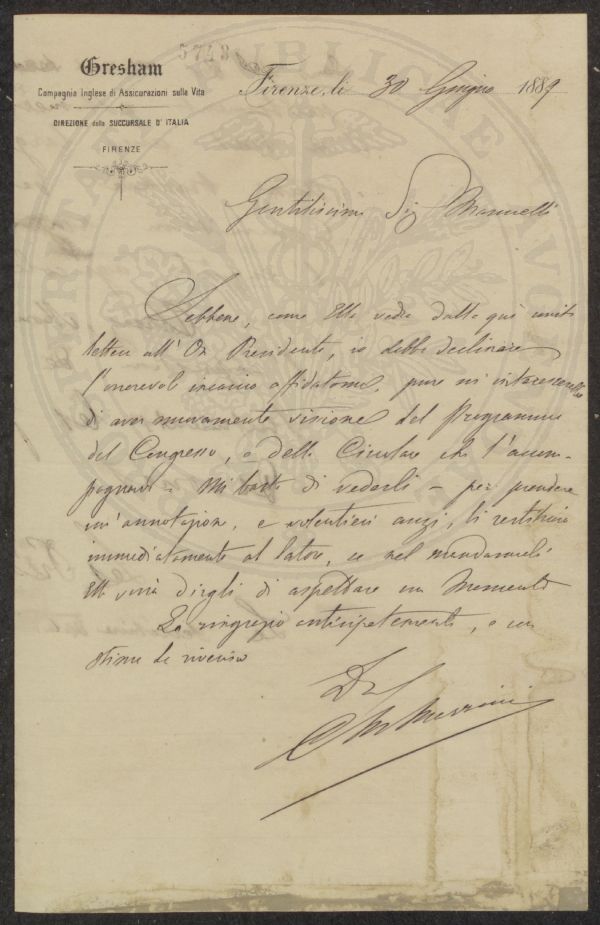 5748
Gresham
Compagnia Inglese di Assicurazioni sulla Vita
DIREZIONE della SUCCURSALE D'ITALIA
FIRENZE
Firenze, li 30 Giugno 1889
Gentilissimo Sig Mannelli
Sebbene, come Ella vedrà dalla qui unita
lettera all' On Presidente, io debba declinare
l'onorevol incarico affidatomi, pure mi interesserebbe
di aver nuovamente visione del Programma
del Congresso, e della Circolare che l'accom-
pagnava. Mi basta di vederli – per prendere
un'annotazione, e volentieri anzi, li restituirò
immediatamente al latore, se nel mandarmeli
Ella vorrà dirgli di aspettare un Momento
La ringrazio anticipatamente, e con
stima La riverisco